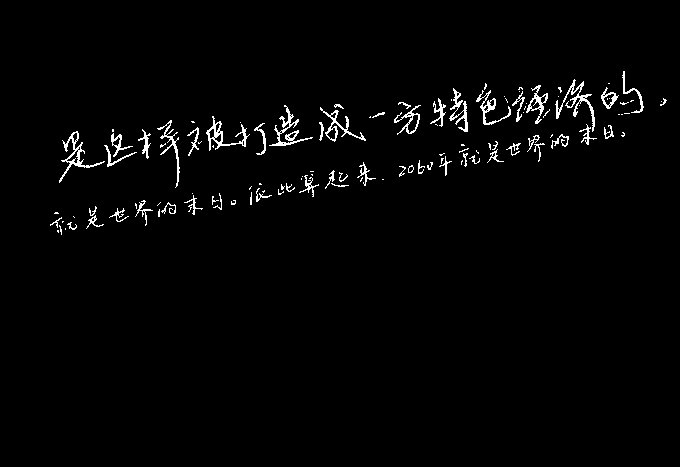 是这样被打造成一方特色经济的。
就是世界的末日。依此算起来，2060年就是世界的末日。